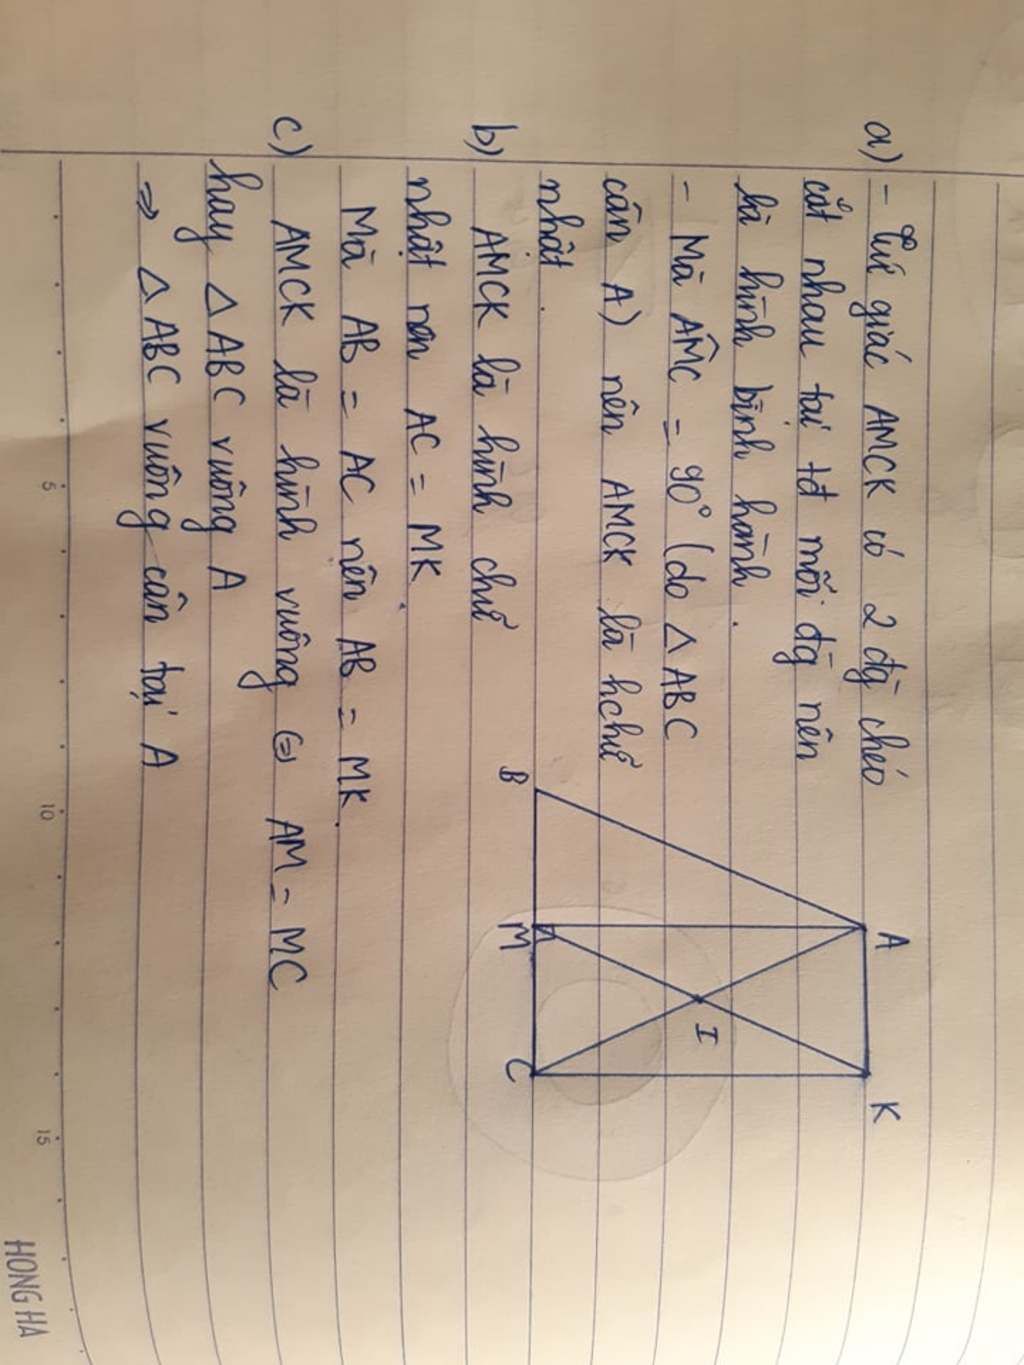 a) - Tứ giác AMCK có 2 đg̀ chéo
cắt nhau tại tđ mỗi đg̀ nên
là hình bình hành.
- Mà AM̂C = 90° (do △ABC
cân A) nên AMCK là hchữ
nhật.
b) AMCK là hình chữ
nhật nên AC = MK.
Mà AB = AC nên AB = MK.
c) AMCK là hình vuông ⇔ AM = MC
hay △ABC vuông A
⇒ △ABC vuông cân tại A
A
K
I
B
M
C
5
10
15
HONG HA